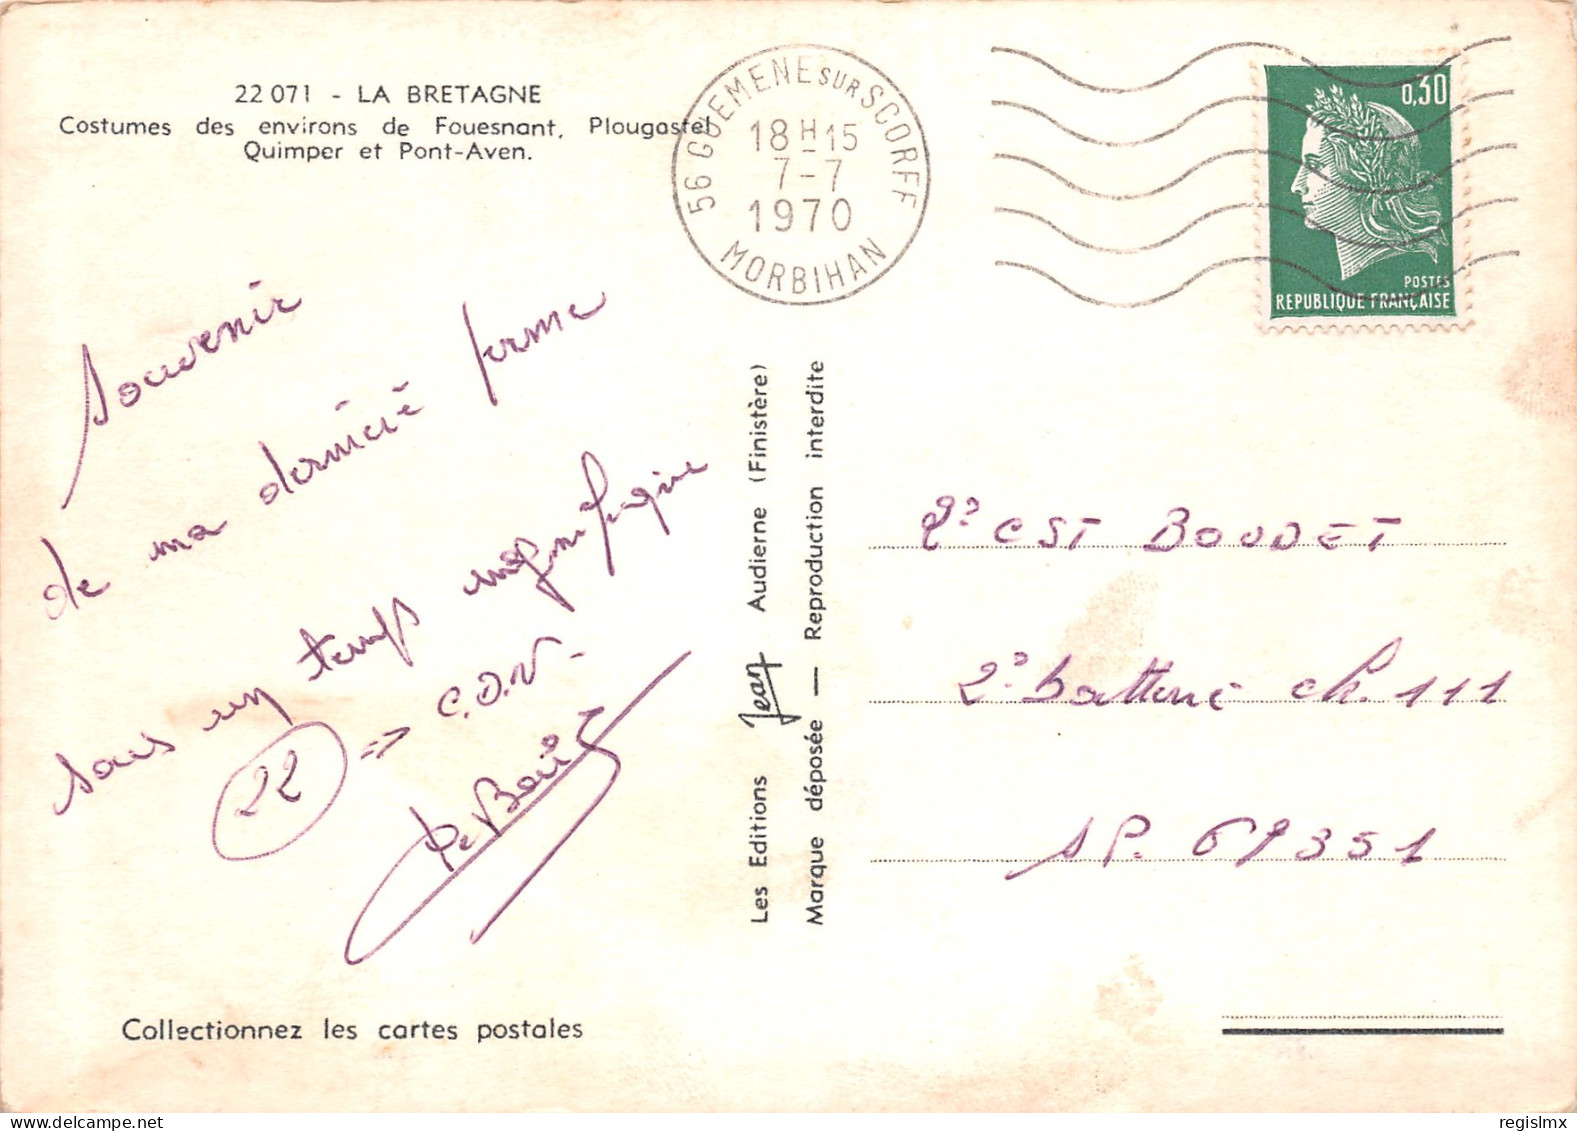 22 071 - LA BRETAGNE
Costumes des environs de Fouesnant, Plougastel
Quimper et Pont-Aven.
56 GUEMENE SUR SCORFF
18H15
7-7
1970
MORBIHAN
0,30
POSTES
REPUBLIQUE FRANÇAISE
Souvenir
de ma dernière perme
sous un temps magnifique
22 => C.O.V.
Les Editions Jean Audierne (Finistère)
Marque déposée — Reproduction interdite
2° CST BOUDET
2° batterie ch. 111
SP. 69351
Collectionnez les cartes postales
regislmx